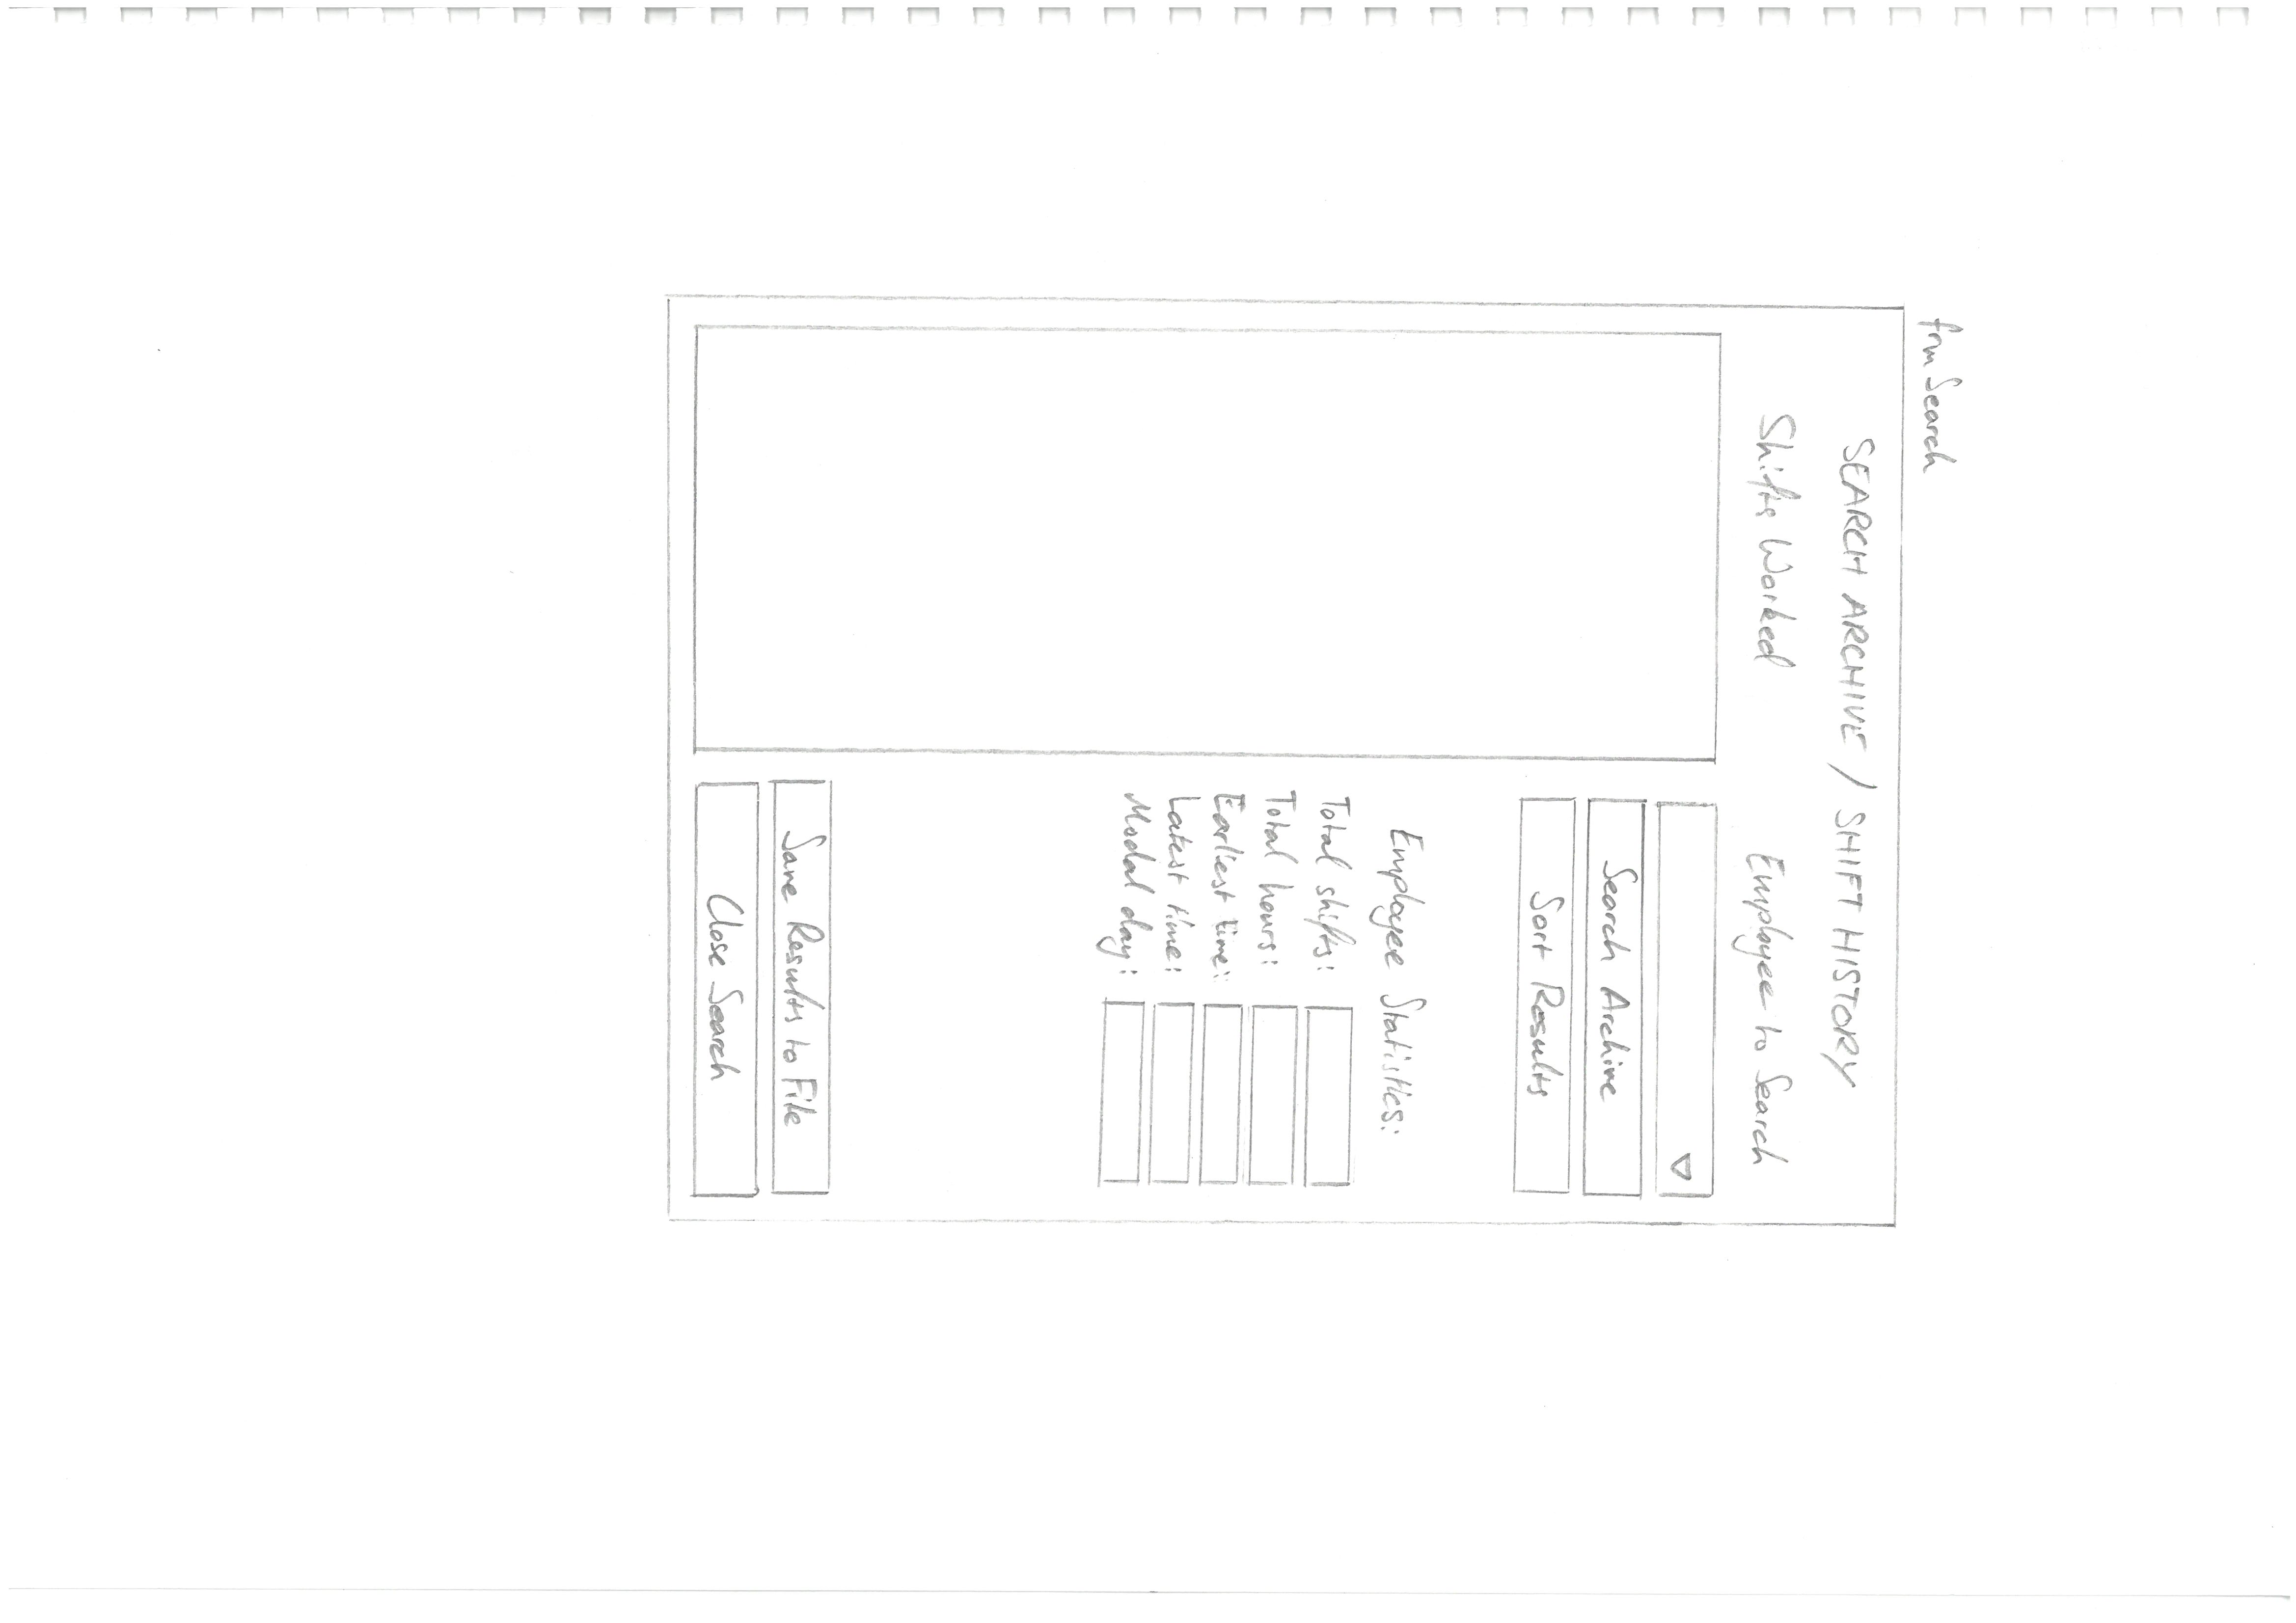 frmSearch
SEARCH ARCHIVE / SHIFT HISTORY
Shifts Worked
Employee to Search
Search Archive
Sort Results
Employee Statistics:
Total shifts:
Total hours:
Earliest time:
Latest time:
Modal day:
Save Results to File
Close Search